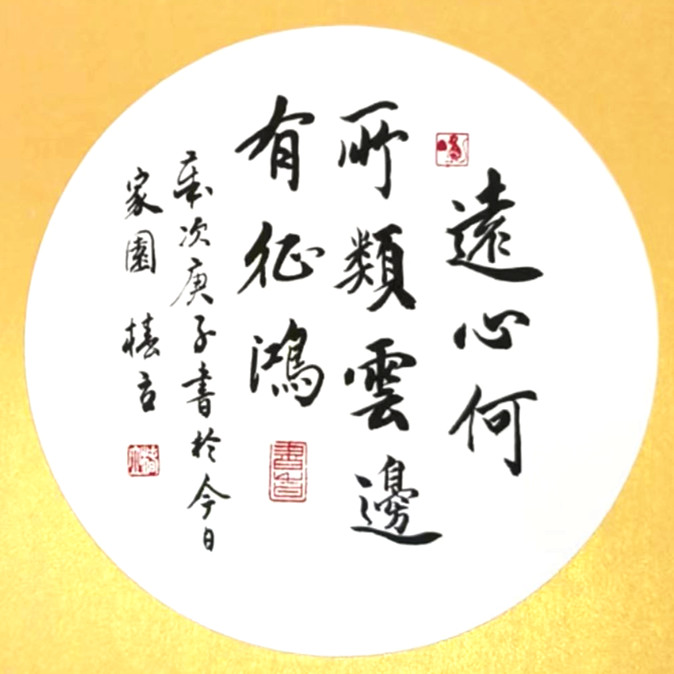 遠心何
所類雲邊
有征鴻
歲次庚子書於今日
家園 椿言